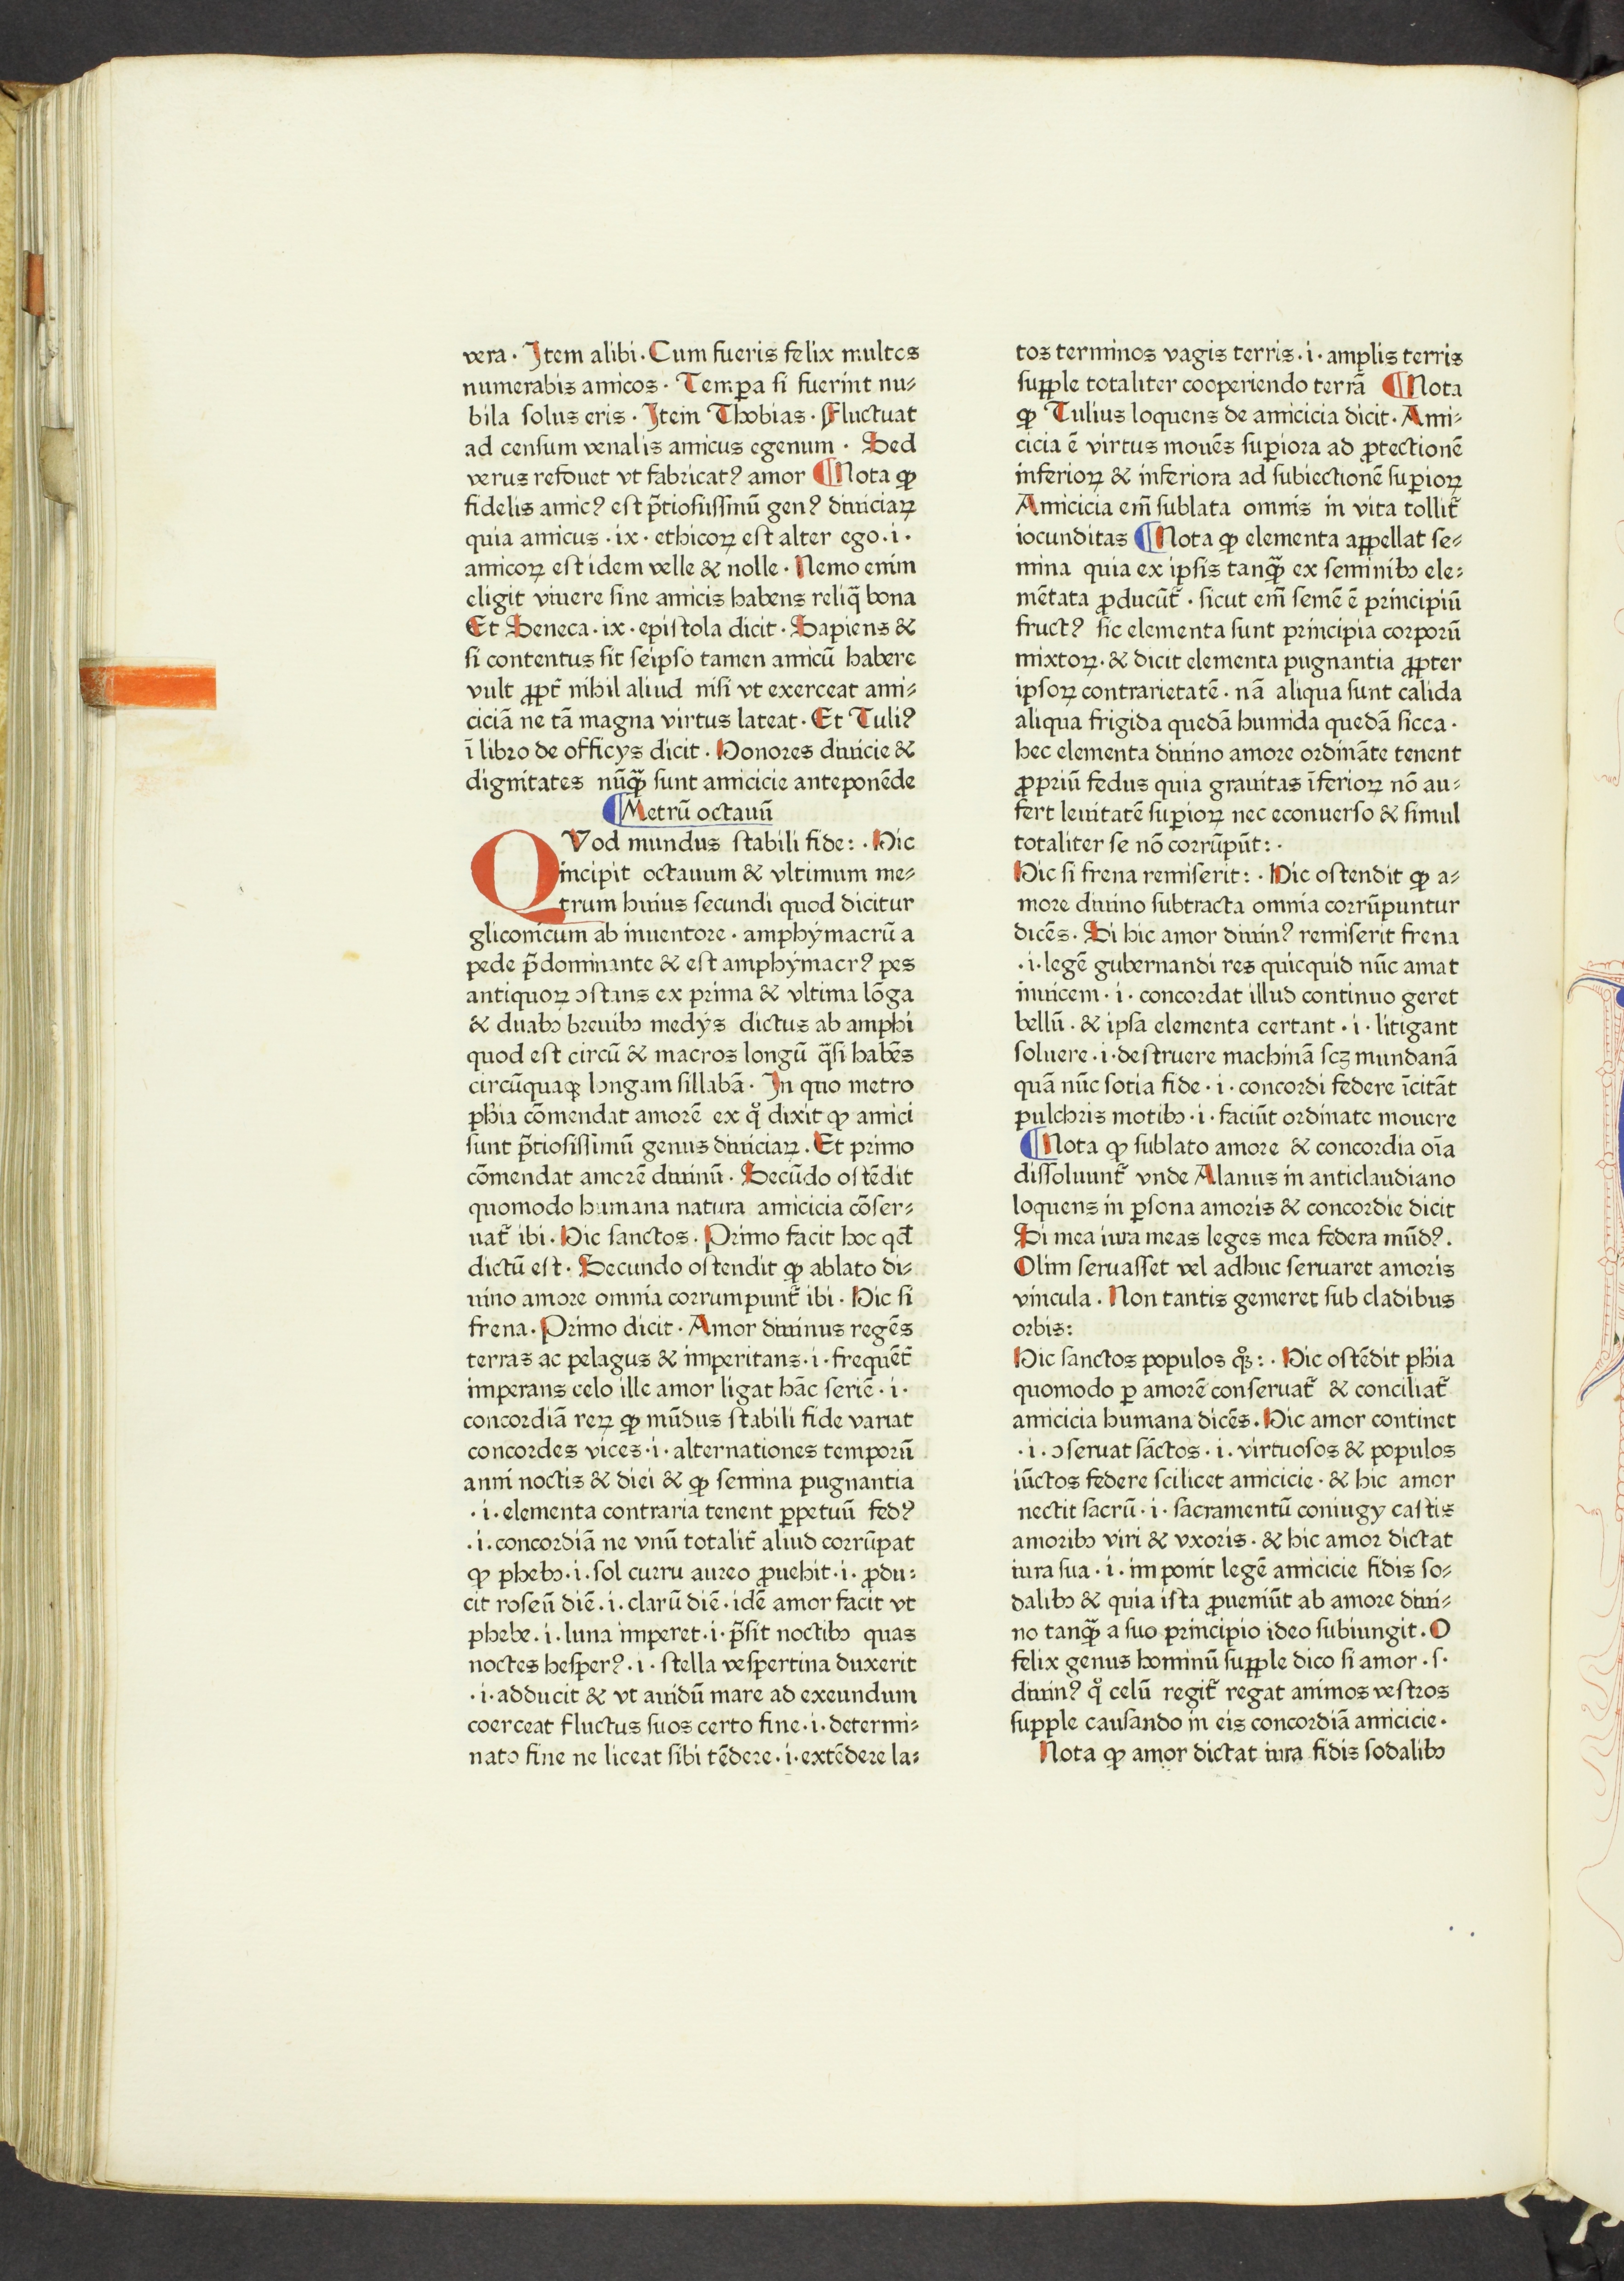 vera. Item alibi. Cum fueris felix multos
numerabis amicos. Tempa si fuerint nu⸗
bila solus eris. Item Thobias. Fluctuat
ad censum venalis amicus egenum. Sed
verus refouet vt fabricatꝰ amor ¶Nota ꝙ
fidelis amicꝰ est p̃tiosissimū genꝰ diuiciaꝝ
quia amicus .ix. ethicoꝝ est alter ego .i.
amicoꝝ est idem velle & nolle. Nemo enim
eligit viuere sine amicis habens reliq̄ bona
Et Seneca .ix. epistola dicit. Sapiens &
si contentus sit seipso tamen amicū habere
vult ꝓpt̃ nihil aliud nisi vt exerceat ami⸗
ciciā ne tā magna virtus lateat. Et Tuliꝰ
ī libro de officys dicit. Honores diuicie &
dignitates nūq̄ꝫ sunt amicicie anteponēde
¶Metrū octauū
QVod mundus stabili fide: . Hic
incipit octauum & vltimum me⸗
trum huius secundi quod dicitur
gliconicum ab inuentore. amphymacrū a
pede p̄dominante & est amphymacrꝰ pes
antiquoꝝ ↄstans ex prima & vltima lōga
& duabꝫ breuibꝫ medys dictus ab amphi
quod est circū & macros longū q̄si habēs
circūquaqꝫ longam sillabā. In quo metro
phia cōmendat amorē ex qͦ dixit ꝙ amici
sunt p̄tiosissimū genus diuiciaꝝ. Et primo
cōmendat amorē diuinū. Secūdo ostēdit
quomodo humana natura amicicia cōser⸗
uat̃ ibi. Hic sanctos. Primo facit hoc qd̄
dictū est. Secundo ostendit ꝙ ablato di⸗
uino amore omnia corrumpunt̃ ibi. Hic si
frena. Primo dicit. Amor diuinus regēs
terras ac pelagus & imperitans .i. frequēt̃
imperans celo ille amor ligat hāc seriē .i.
concordiā reꝝ ꝙ mūdus stabili fide variat
concordes vices .i. alternationes temporū
anni noctis & diei & ꝙ semina pugnantia
.i. elementa contraria tenent ꝑpetuū fedꝰ
.i. concordiā ne vnū totalit̃ aliud corrūpat
ꝙ phebꝫ .i. sol curru aureo ꝓuehit .i. ꝓdu⸗
cit roseū diē .i. clarū diē . idē amor facit vt
phebe .i. luna imperet .i. p̄sit noctibꝫ quas
noctes hesperꝰ .i. stella vespertina duxerit
.i. adducit & vt auidū mare ad exeundum
coerceat fluctus suos certo fine .i. determi⸗
nato fine ne liceat sibi tēdere .i. extēdere la⸗
tos terminos vagis terris .i. amplis terris
suꝑple totaliter cooperiendo terrā ¶Nota
ꝙ Tulius loquens de amicicia dicit. Ami⸗
cicia ē virtus mouēs suꝑiora ad ꝓtectionē
inferioꝝ & inferiora ad subiectionē suꝑioꝝ
Amicicia em̄ sublata omnis in vita tollit̃
iocunditas ¶Nota ꝙ elementa appellat se⸗
mina quia ex ipsis tanq̄ꝫ ex seminibꝫ ele⸗
mētata ꝓducūt̃. sicut em̄ semē ē principiū
fructꝰ sic elementa sunt principia corporū
mixtoꝝ. & dicit elementa pugnantia ꝓpter
ipsoꝝ contrarietatē. nā aliqua sunt calida
aliqua frigida quedā humida quedā sicca.
hec elementa diuino amore ordināte tenent
ꝓpriū fedus quia grauitas īferioꝝ nō au⸗
fert leuitatē suꝑioꝝ nec econuerso & simul
totaliter se nō corrūpūt: .
Hic si frena remiserit: . Hic ostendit ꝙ a⸗
more diuino subtracta omnia corrūpuntur
dicēs. Si hic amor diuinꝰ remiserit frena
.i. legē gubernandi res quicquid nūc amat
inuicem .i. concordat illud continuo geret
bellū. & ipsa elementa certant .i. litigant
soluere .i. destruere machinā scꝫ mundanā
quā nūc sotia fide .i. concordi federe īcitāt
pulchris motibꝫ .i. faciūt ordinate mouere
¶Nota ꝙ sublato amore & concordia oīa
dissoluunt̃ vnde Alanus in anticlaudiano
loquens in ꝑsona amoris & concordie dicit
Si mea iura meas leges mea federa mūdꝰ.
Olim seruasset vel adhuc seruaret amoris
vincula. Non tantis gemeret sub cladibus
orbis:
Hic sanctos populos qͦꝫ: . Hic ostēdit phia
quomodo ꝑ amorē conseruat̃ & conciliat̃
amicicia humana dicēs. Hic amor continet
.i. ↄseruat sāctos .i. virtuosos & populos
iūctos federe scilicet amicicie. & hic amor
nectit sacrū .i. sacramentū coniugy castis
amoribꝫ viri & vxoris. & hic amor dictat
iura sua .i. imponit legē amicicie fidis so⸗
dalibꝫ & quia ista ꝓueniūt ab amore diui⸗
no tanq̄ꝫ a suo principio ideo subiungit. O
felix genus hominū suꝑple dico si amor .s.
diuinꝰ qͦ celū regit̃ regat animos vestros
supple causando in eis concordiā amicicie.
Nota ꝙ amor dictat iura fidis sodalibꝫ